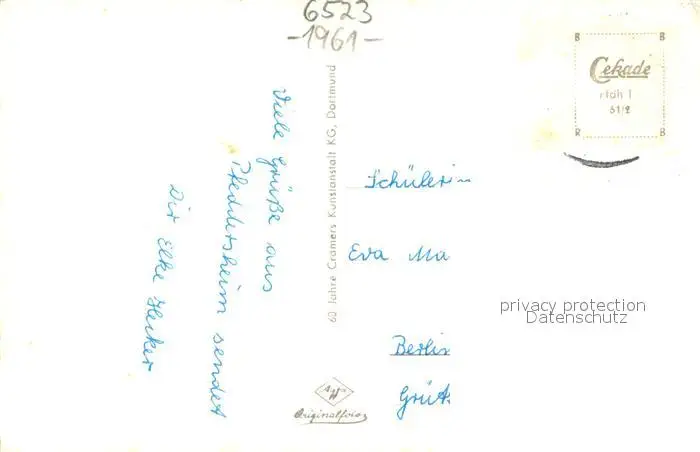 6523
-1961-
B B
Cekade
61/2
R B
Viele Grüße aus
Pfeddersheim sendet
Dir Elke Hecker
60 Jahre Cramers Kunstanstalt KG, Dortmund
Schülerin
Eva Ma
Berlin
Grüt
privacy protection
Datenschutz
Agfa
Originalfoto